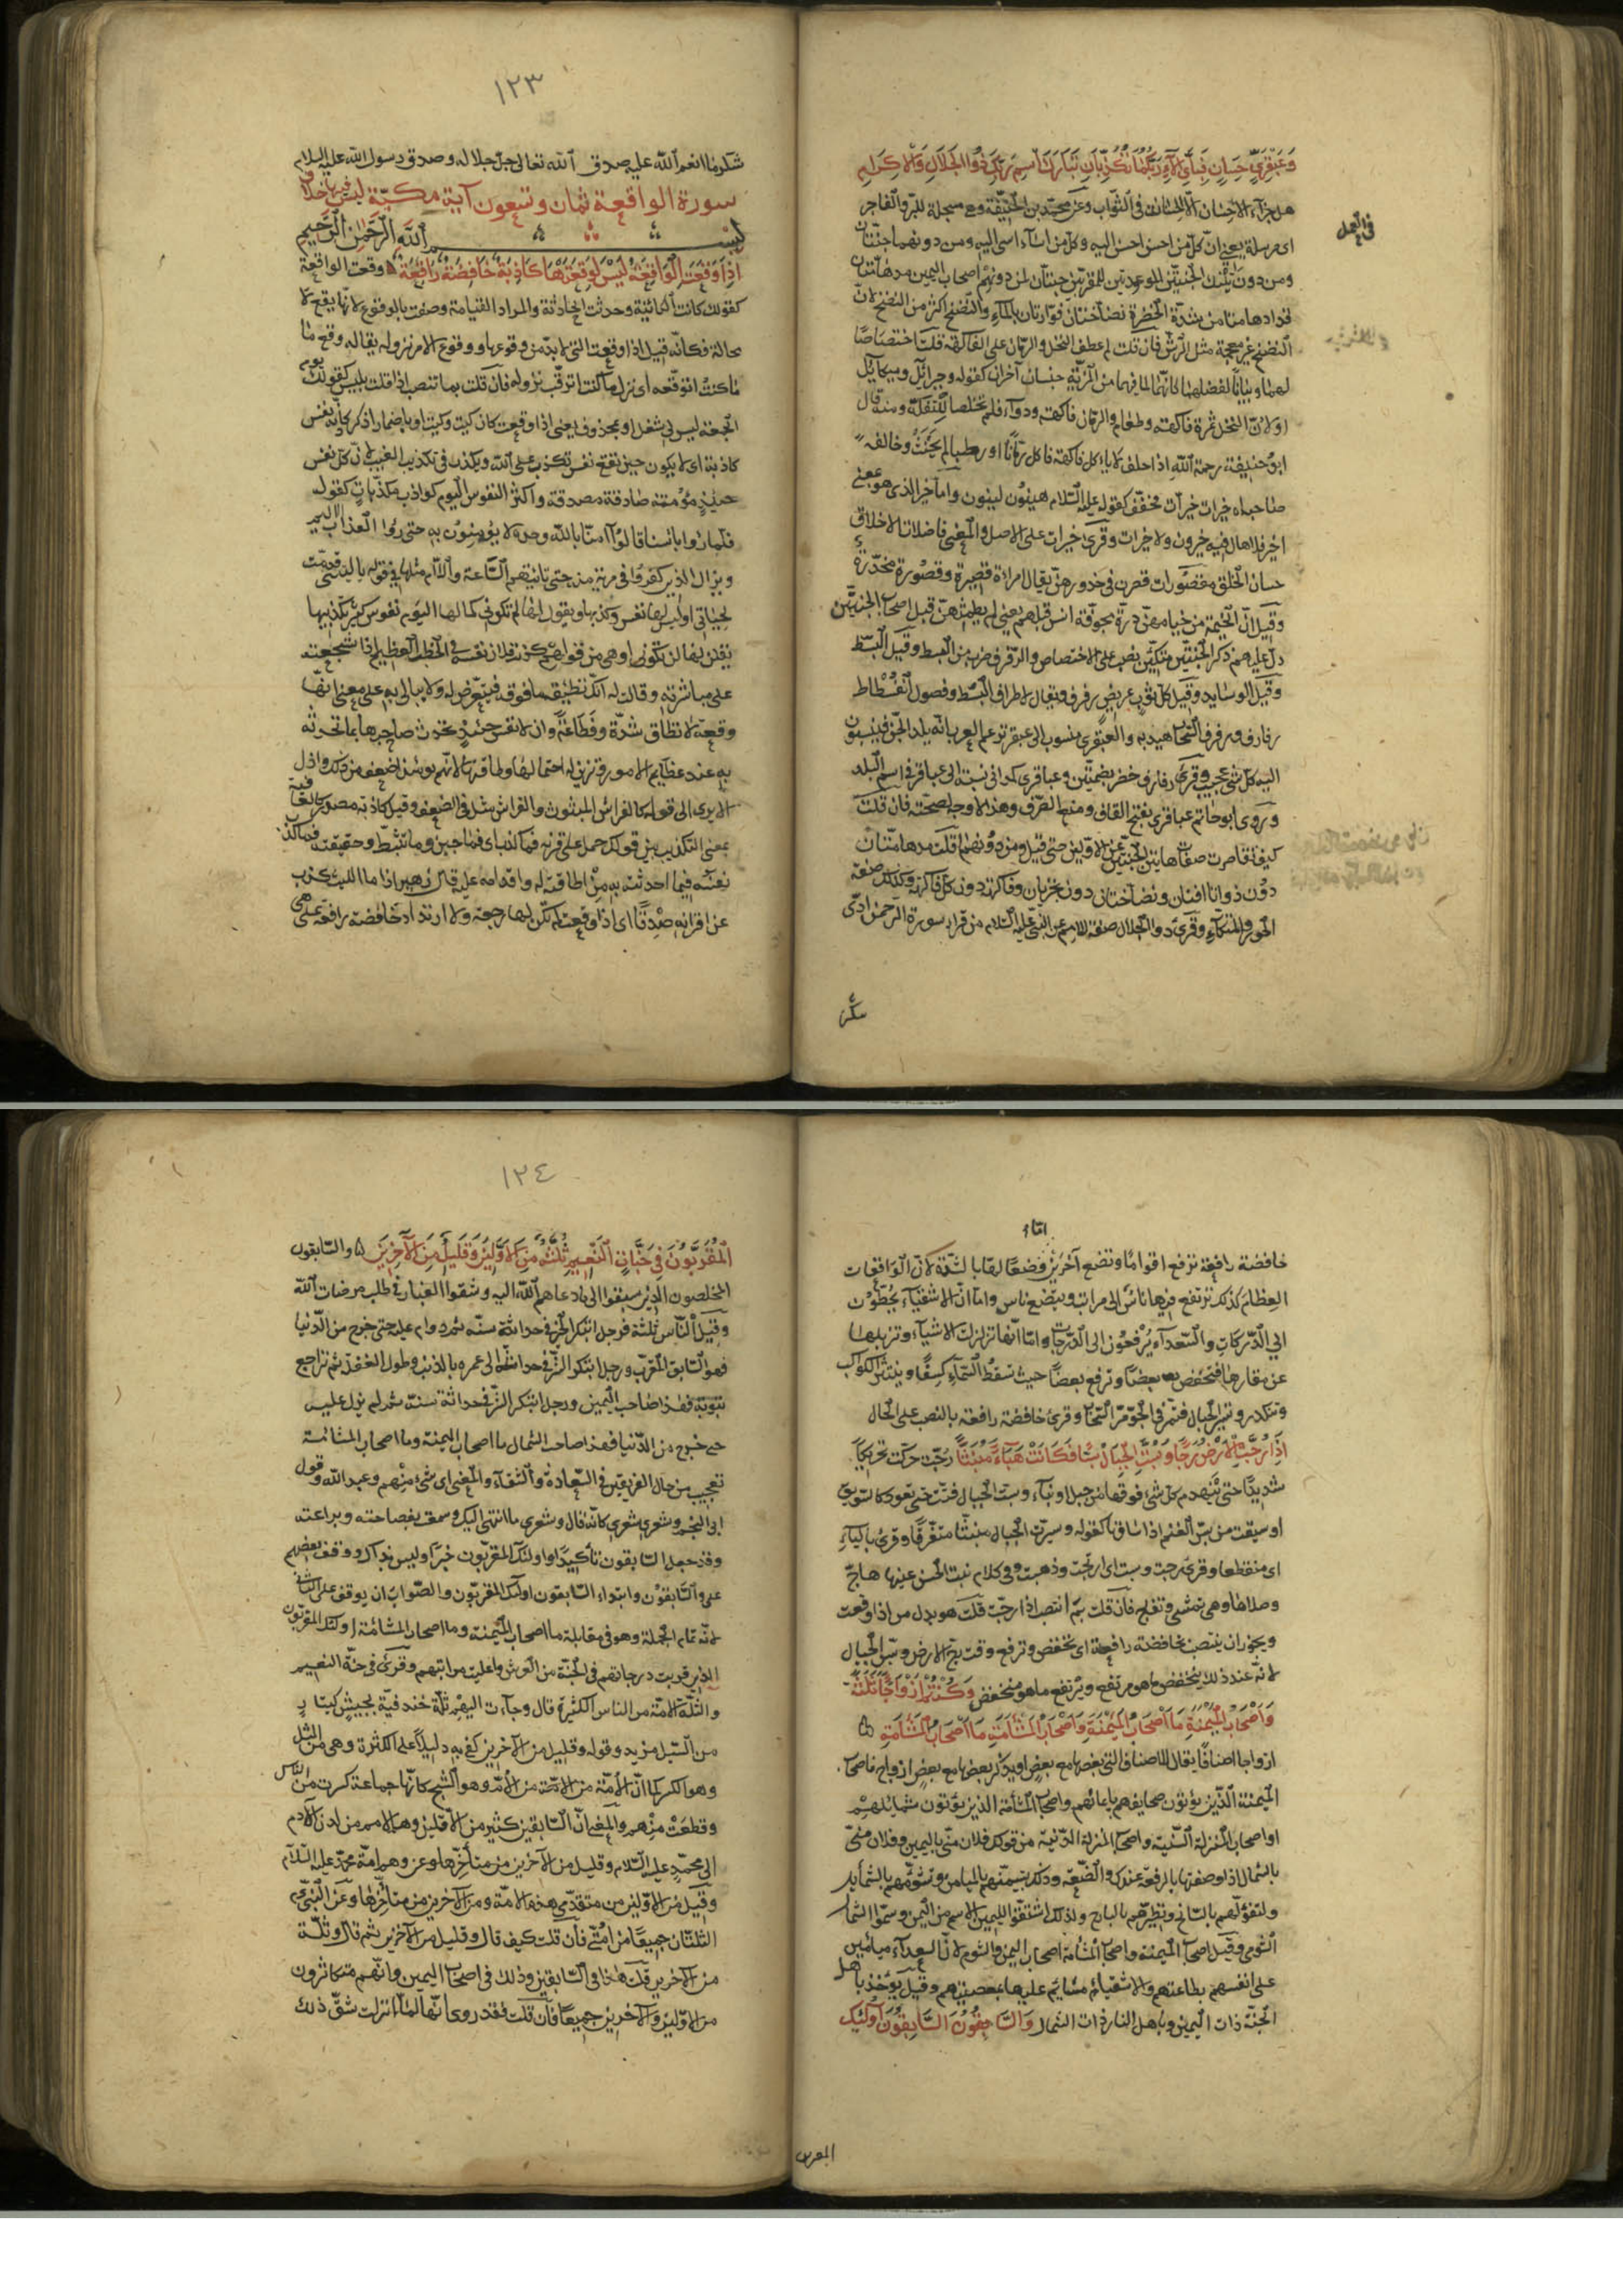 وَعَبْقَرِيٍّ حِسَانٍ فَبِأَيِّ آلَاءِ رَبِّكُمَا تُكَذِّبَانِ تَبَارَكَ اسْمُ رَبِّكَ ذُو الْجَلَالِ وَالْإِكْرَامِ
هل جزاء الاحسان الا الاحسان في الثواب وعن محمد بن الحنفية هي مسجلة للبر والفاجر
في العمل
اى مرسلة يعنى ان كل من احسن احسن اليه وكل من اساء اسى اليه ومن دونهما جنتان
ومن دون تلك الجنتين الموعودتين للمقربين جنتان لمن دونهم اصحاب اليمين مدهامتان
قد ادهامتا من شدة الخضرة نضاختان فوارتان بالماء والنضخ اكثر من النضح لان
النضح غير معجمة مثل الرش فان قلت لم عطف النخل والرمان على الفاكهة قلت اختصاصا
لهما وبيانا لفضلهما كانهما لما فيهما من المزية جنسان آخران كقوله وجبرائل وميكائل
اولان النخل ثمرة فاكهة وطعام والرمان فاكهة ودواء فلم يخلصا للتفكه ومنه قال
ابو حنيفة رحمة الله اذا حلف لا ياكل فاكهة فاكل رمانا او رطبا لم يحنث وخالفه
صاحباه خيرات خيرات مخفف كقوله عليه السلام هينون لينون واما خير الذى هو بمعنى
اخير فلا يقال فيه خيرون ولا خيرات وقرئ خيرات على الاصل والمعنى فاضلات الاخلاق
حسان الخلق مقصورات قصرن في خدورهن يقال امراة قصيرة وقصورة مخدرة
وقيل ان الخيمة من خيامهن درة مجوفة انس قبلهم يعنى لم يطمثهن قبل اصحاب الجنتين
دل عليهم ذكر الجنتين متكئين نصب على الاختصاص والرفرف ضرب من البسط وقيل البسط
وقيل الوسايد وقيل كل ثوب عريض رفرف ويقال لاطراف البسط وفصول الفسطاط
رفارف ورفرف السحاب هيدبه والعبقرى منسوب الى عبقر تزعم العرب انه بلد الجن فينسبون
اليه كل شئ عجيب وقرئ رفارف خضر بضمتين وعباقرى كمدائنى نسبة الى عباقر في اسم البلد
وروى ابو حاتم عباقرى بفتح القاف ومنع الصرف وهذا لا وجه لصحته فان قلت
كيف تقاصرت صفات هاتين الجنتين عن الاوليين حتى قيل ومن دونهما قلت مدهامتان
دون ذواتا افنان ونضاختان دون تجريان وفاكهة دون كل فاكهة وكذلك صفة
الحور والمتكاء وقرئ ذو الجلال صفة للاسم عن النبى عليه السلام من قراء سورة الرحمن ادى
شكر
١٢٣
شكر ما انعم الله عليه صدق الله تعالى جل جلاله وصدق رسول الله عليه السلام
سورة الواقعة ثمان وتسعون آية مكية ليس فيها خلاف
بسم الله الرحمن الرحيم
إِذَا وَقَعَتِ الْوَاقِعَةُ لَيْسَ لِوَقْعَتِهَا كَاذِبَةٌ خَافِضَةٌ رَافِعَةٌ وقعت الواقعة
كقولك كانت الكائنة وحدثت الحادثة والمراد القيامة وصفت بالوقوع لانها يقع لا
محالة فكانه قيل اذا وقعت التى لا بد من وقوعها ووقوع الامر نزوله يقال وقع ما
ما كنت اتوقعه اى نزل ما كنت اترقب نزوله فان قلت بما تنتصب اذا قلت بليس كقولك يوم
الجمعة ليس لى شغل او بمحذوف يعنى اذا وقعت كان كيت وكيت او باضمار اذكر كاذبة نفس
كاذبة اى لا يكون حين تقع نفس تكذب على الله وتكذب في تكذيب الغيب لان كل نفس
حينئذ مؤمنة صادقة مصدقة واكثر النفوس اليوم كواذب مكذبات كقوله
فلما راوا باسنا قالوا آمنا بالله وحده لا يؤمنون به حتى يروا العذاب الاليم
ولا يزال الذين كفروا في مرية منه حتى تاتيهم الساعة واللام مثلها في قوله يا ليتنى قدمت
لحياتى او ليس لها نفس تكذبها وتقول لها لم تكونى كما لها اليوم نفوس كثيرة يكذبنها
يقلن لها لن تكونى او هى من قولهم كذبت فلانا نفسه في الخطب العظيم اذا شجعته
على مباشرته وقالت له انك تطيقه ما فوقه فتعرض له ولا تبالى به على معنى انها
وقعة لا تطاق شدة وفظاعة وان لا نفس حينئذ تحدث صاحبها بما تحدثه
به عند عظايم الامور وتزين له احتمالها واطاقتها لانهم يومئذ اضعف من ذلك واذل
الا يرى الى قوله كالفراش المبثوث والفراش مثل في الضعف وقيل كاذبة مصدر كالعافية
بمعنى التكذيب من قولك حمل على قرنه فما كذب اى فما جبن وما تثبط وحقيقته فما كذب
نفسه فيما حدثته به من اطاقته له واقدامه عليه قال زهير اذا ما الليث كذب
عن اقرانه صدقا اى اذا وقعت لم تكن لها رجعة ولا ارتداد خافضة رافعة على هى
اما
خافضة رافعة ترفع اقواما وتضع آخرين وصفا لها بالشدة لان الواقعات
العظام كذلك ترتفع فيها ناس الى مراتب ويتضع ناس واما ان الاشقياء يحطون
الى الدركات والسعداء يرفعون الى الدرجات واما انها تزلزل الاشياء وتزيلها
عن مقارها فتخفض بعضا وترفع بعضا حيث تسقط السماء كسفا وينتثر الكواكب
وتنكدر وتسير الجبال فتمر في الجو مر السحاب وقرئ خافضة رافعة بالنصب على الحال
إِذَا رُجَّتِ الْأَرْضُ رَجًّا وَبُسَّتِ الْجِبَالُ بَسًّا فَكَانَتْ هَبَاءً مُنْبَثًّا رجت حركت تحريكا
شديدا حتى ينهدم كل شئ فوقها من جبل وبناء وبست الجبال فتتت حتى تعود كالسويق
او سيقت من بس الغنم اذا ساقها كقوله وسيرت الجبال منبثا متفرقا وقرئ بالتاء
اى منقطعا وقرئ رجت وبست اى ارتجت وذهبت وفى كلام بنت الخس عينها هاج
وصلاها وهى تمشى وتفاج فان قلت بم انتصب اذا رجت قلت هو بدل من اذا وقعت
ويجوز ان ينتصب بخافضة رافعة اى تخفض وترفع وقت رج الارض وبس الجبال
لانه عند ذلك ينخفض ما هو مرتفع ويرتفع ما هو منخفض وَكُنْتُمْ أَزْوَاجًا ثَلَاثَةً
وَأَصْحَابُ الْمَيْمَنَةِ مَا أَصْحَابُ الْمَيْمَنَةِ وَأَصْحَابُ الْمَشْأَمَةِ مَا أَصْحَابُ الْمَشْأَمَةِ
ازواجا اصنافا يقال للاصناف التى بعضها مع بعض او يذكر بعضها مع بعض ازواج فاصحاب
الميمنة الذين يؤتون صحايفهم بايمانهم واصحاب المشأمة الذين يؤتون شمائلهم
او اصحاب المنزلة السنية واصحاب المنزلة الدنية من قولك فلان منى باليمين وفلان منى
بالشمال اذا وصفتها بالرفعة عندك والضعة وذلك لتيمنهم بالميامن وتشومهم بالشمايل
ولتفؤلهم بالسانح وتطيرهم بالبارح ولذلك اشتقوا لليمين الاسم من اليمن وسموا الشمال
الشومى وقيل اصحاب الميمنة واصحاب المشأمة اصحاب اليمن والشوم لان السعداء ميامين
على انفسهم بطاعتهم والاشقياء مشايم عليها بمعصيتهم وقيل يؤخذ باهل
الجنة ذات اليمين وباهل النار ذات الشمال وَالسَّابِقُونَ السَّابِقُونَ أُولَئِكَ
المقربون
١٢٤
الْمُقَرَّبُونَ فِي جَنَّاتِ النَّعِيمِ ثُلَّةٌ مِنَ الْأَوَّلِينَ وَقَلِيلٌ مِنَ الْآخِرِينَ والسابقون
المخلصون الذين سبقوا الى ما دعاهم الله اليه وشقوا الغبار في طلب مرضات الله
وقيل الناس ثلثة فرجل ابتكر الخير في حداثة سنه ثم داوم عليه حتى خرج من الدنيا
فهو السابق المقرب ورجل ابتكر الشر في حداثته الى عمره بالذنب وطول الغفلة ثم تراجع
بتوبة فهذا صاحب اليمين ورجل ابتكر الشر في حداثة سنه ثم لم يزل عليه
حتى خرج من الدنيا فهذا صاحب الشمال ما اصحاب الميمنة وما اصحاب المشأمة
تعجيب من حال الفريقين في السعادة والشقاء والمعنى اى شئ هم وعبد الله وقول
ابى النجم وشعرى شعرى كانه قال وشعرى ما انتهى اليك وسمعت بفصاحته وبراعته
وقد جعل السابقون تاكيدا واولئك المقربون خبرا وليس بذاك ووقف بعضهم
على والسابقون وابتداء السابقون اولئك المقربون والصواب ان يوقف على الثانى
لانه تمام الجملة وهو فى مقابلة ما اصحاب الميمنة وما اصحاب المشأمة اولئك المقربون
الذين قربت درجاتهم في الجنة من العرش واعليت مراتبهم وقرئ فى جنة النعيم
والثلة الامة من الناس الكثيرة قال وجاءت اليهم ثلة خندفية بجيش كتيار
من السيل مزبد وقوله وقليل من الآخرين كفى به دليلا على الكثرة وهى من الثل
وهو الكسر كما ان الامة من الامة من الام وهو الشج كانها جماعة كسرت من الناس
وقطعت منهم والمعنى ان السابقين كثير من الاولين وهم الامم من لدن آدم
الى محمد عليه السلام وقليل من الآخرين من متأخرها وعن وهم امة محمد عليه السلام
وقيل من الاولين من متقدمى هذه الامة ومن الآخرين من متاخرها وعن النبى
الثلتان جميعا من امتى فان قلت كيف قال وقليل من الآخرين ثم قال وثلة
من الآخرين قلت هذا فى السابقين وذلك فى اصحاب اليمين وانهم متكاثرون
من الاولين والآخرين جميعا فان قلت فقد روى انها لما انزلت شق ذلك